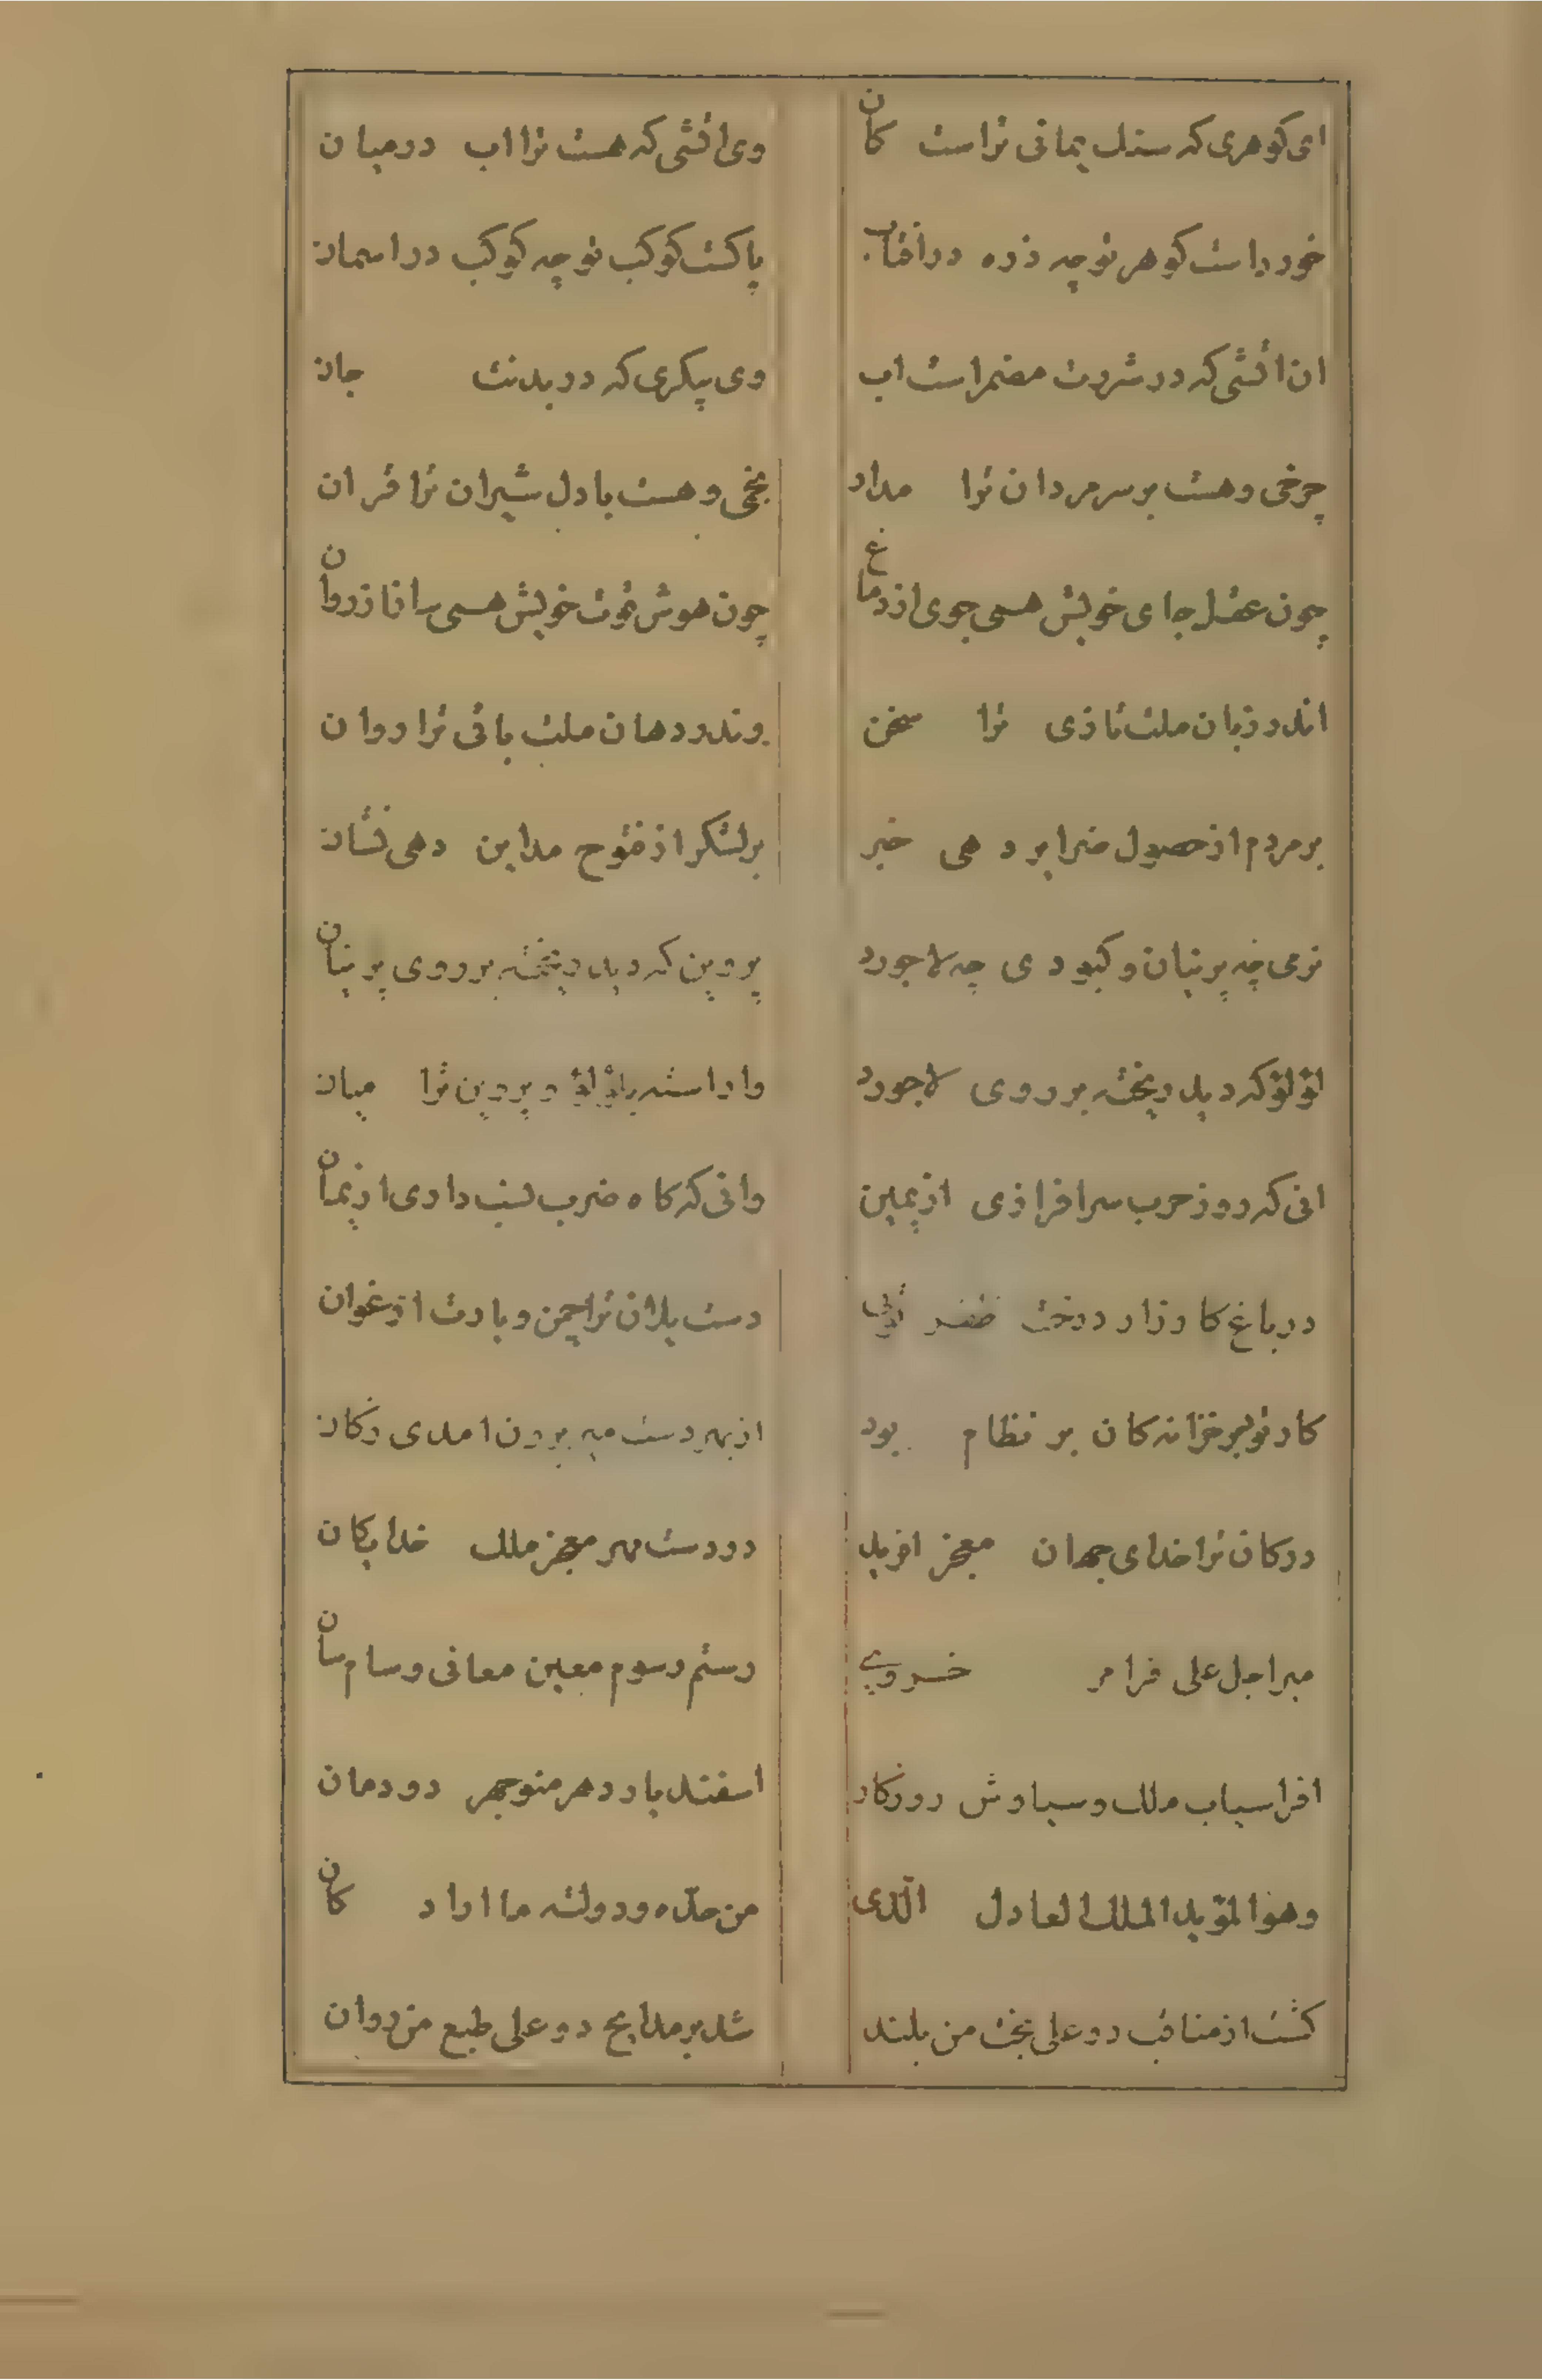 ای کوهری که سنک یمانی تراست کان وی اتشی که هست ترا اب درمیان
خورداست کوهر تو چه ذره در افتاب پاکست کوکب تو چه کوکب در اسمان
ان اتشی که در شروت مضمراست اب وی پیکری که در بدنت جان
چرخی و هست بر سر مردان ترا مدار نجمی و هست با دل شیران ترا قران
چون عقل جای خویش همی جوی از دماغ چون هوش قوت خویش همی از روان
اندر زبان ملت تازی ترا سخن وندر دهان ملت باقی ترا روان
بر مردم از حصول ضرایر دهی خبر بر لشکر از فتوح مداین دهی نشان
نرمی چه پرنیان و کبودی چه لاجورد پروین که دید ریخته بر روی پرنیان
لؤلؤ که دید ریخته بر روی لاجورد واراسته بلؤلؤ و پروین ترا میان
انی که روز حرب سرافرازی از یمین وانی که کاه ضرب لسب داری از یمان
در باغ کارزار درخت ظفر توئی دست یلان ترا چمن و بارت ارغوان
کار تو بر خزانه کان بر نظام بود از بهر دست میر برون امدی زکان
در کان ترا خدای جهان معجز افرید در دست میر معجز ملک خدایکان
میر اجل علی فرامر خسروی رستم رسوم معین معانی و سام سان
افراسیاب ملک و سیاوش روزکار اسفندیار دهر منوچهر دودمان
وهو المؤید الملک العادل الّذی من حدّه ودولته ما اراد کان
کشت از مناقب دو علی بخت من بلند شد بر مدایح دو علی طبع من روان